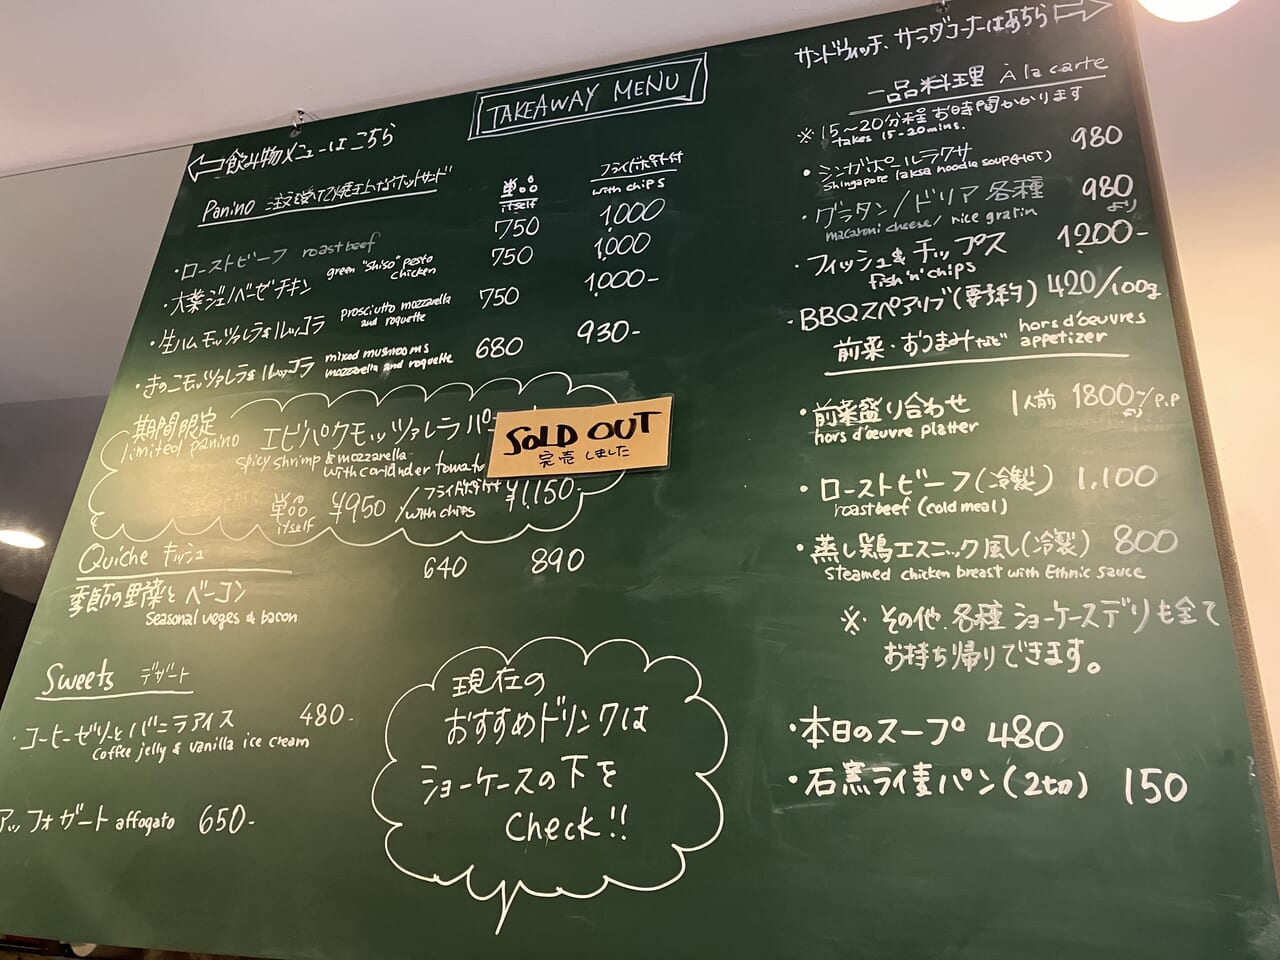 TAKEAWAY MENU
飲み物メニューはこちら
Panino 注文を受けて焼き上げるホットサンド
単品 フライドポテト付
itself with chips
・ローストビーフ roastbeef 750 1,000
・大葉ジェノベーゼチキン green "shiso" pesto chicken 750 1,000
・生ハムモッツァレラ&ルッコラ prosciutto mozzarella and roquette 750 1,000-
・きのこモッツァレラ&ルッコラ mixed mushrooms mozzarella and roquette 680 930-
期間限定
limited panino
エビパクモッツァレラパ
spicy shrimp & mozzarella
with coriander tomato
SOLD OUT
完売しました
単品 ¥950 / フライドポテト付 ¥1,150-
itself with chips
Quiche キッシュ 640 890
季節の野菜とベーコン
seasonal veges & bacon
Sweets デザート
・コーヒーゼリーとバニラアイス 480-
coffee jelly & vanilla ice cream
アッフォガート affogato 650-
現在の
おすすめドリンクは
ショーケースの下を
Check!!
サンドウィッチ、サラダコーナーはあちら
一品料理 À la carte
※15〜20分程お時間かかります
takes 15-20mins.
・シンガポールラクサ 980
Shingapore laksa noodle soup(HOT)
・グラタン/ドリア各種 980より
macaroni cheese/ rice gratin
・フィッシュ&チップス 1200-
fish 'n' chips
・BBQスペアリブ(要予約) 420/100g
前菜・おつまみなど hors d'oeuvres
appetizer
・前菜盛り合わせ 1人前 1800-〜/p.p
より
hors d'œuvre platter
・ローストビーフ(冷製) 1,100
roastbeef (cold meal)
・蒸し鶏エスニック風し(冷製) 800
steamed chicken breast with Ethnic sauce
※ その他、各種ショーケースデリも全て
お持ち帰りできます。
・本日のスープ 480
・石窯ライ麦パン(2切) 150